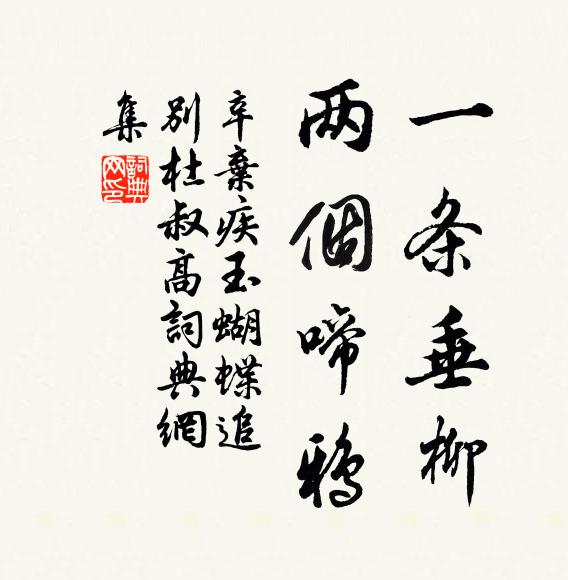 一条垂柳
两個啼鴉
辛棄疾玉蝴蝶追
别杜叔高詞典網
集
詞典
网印